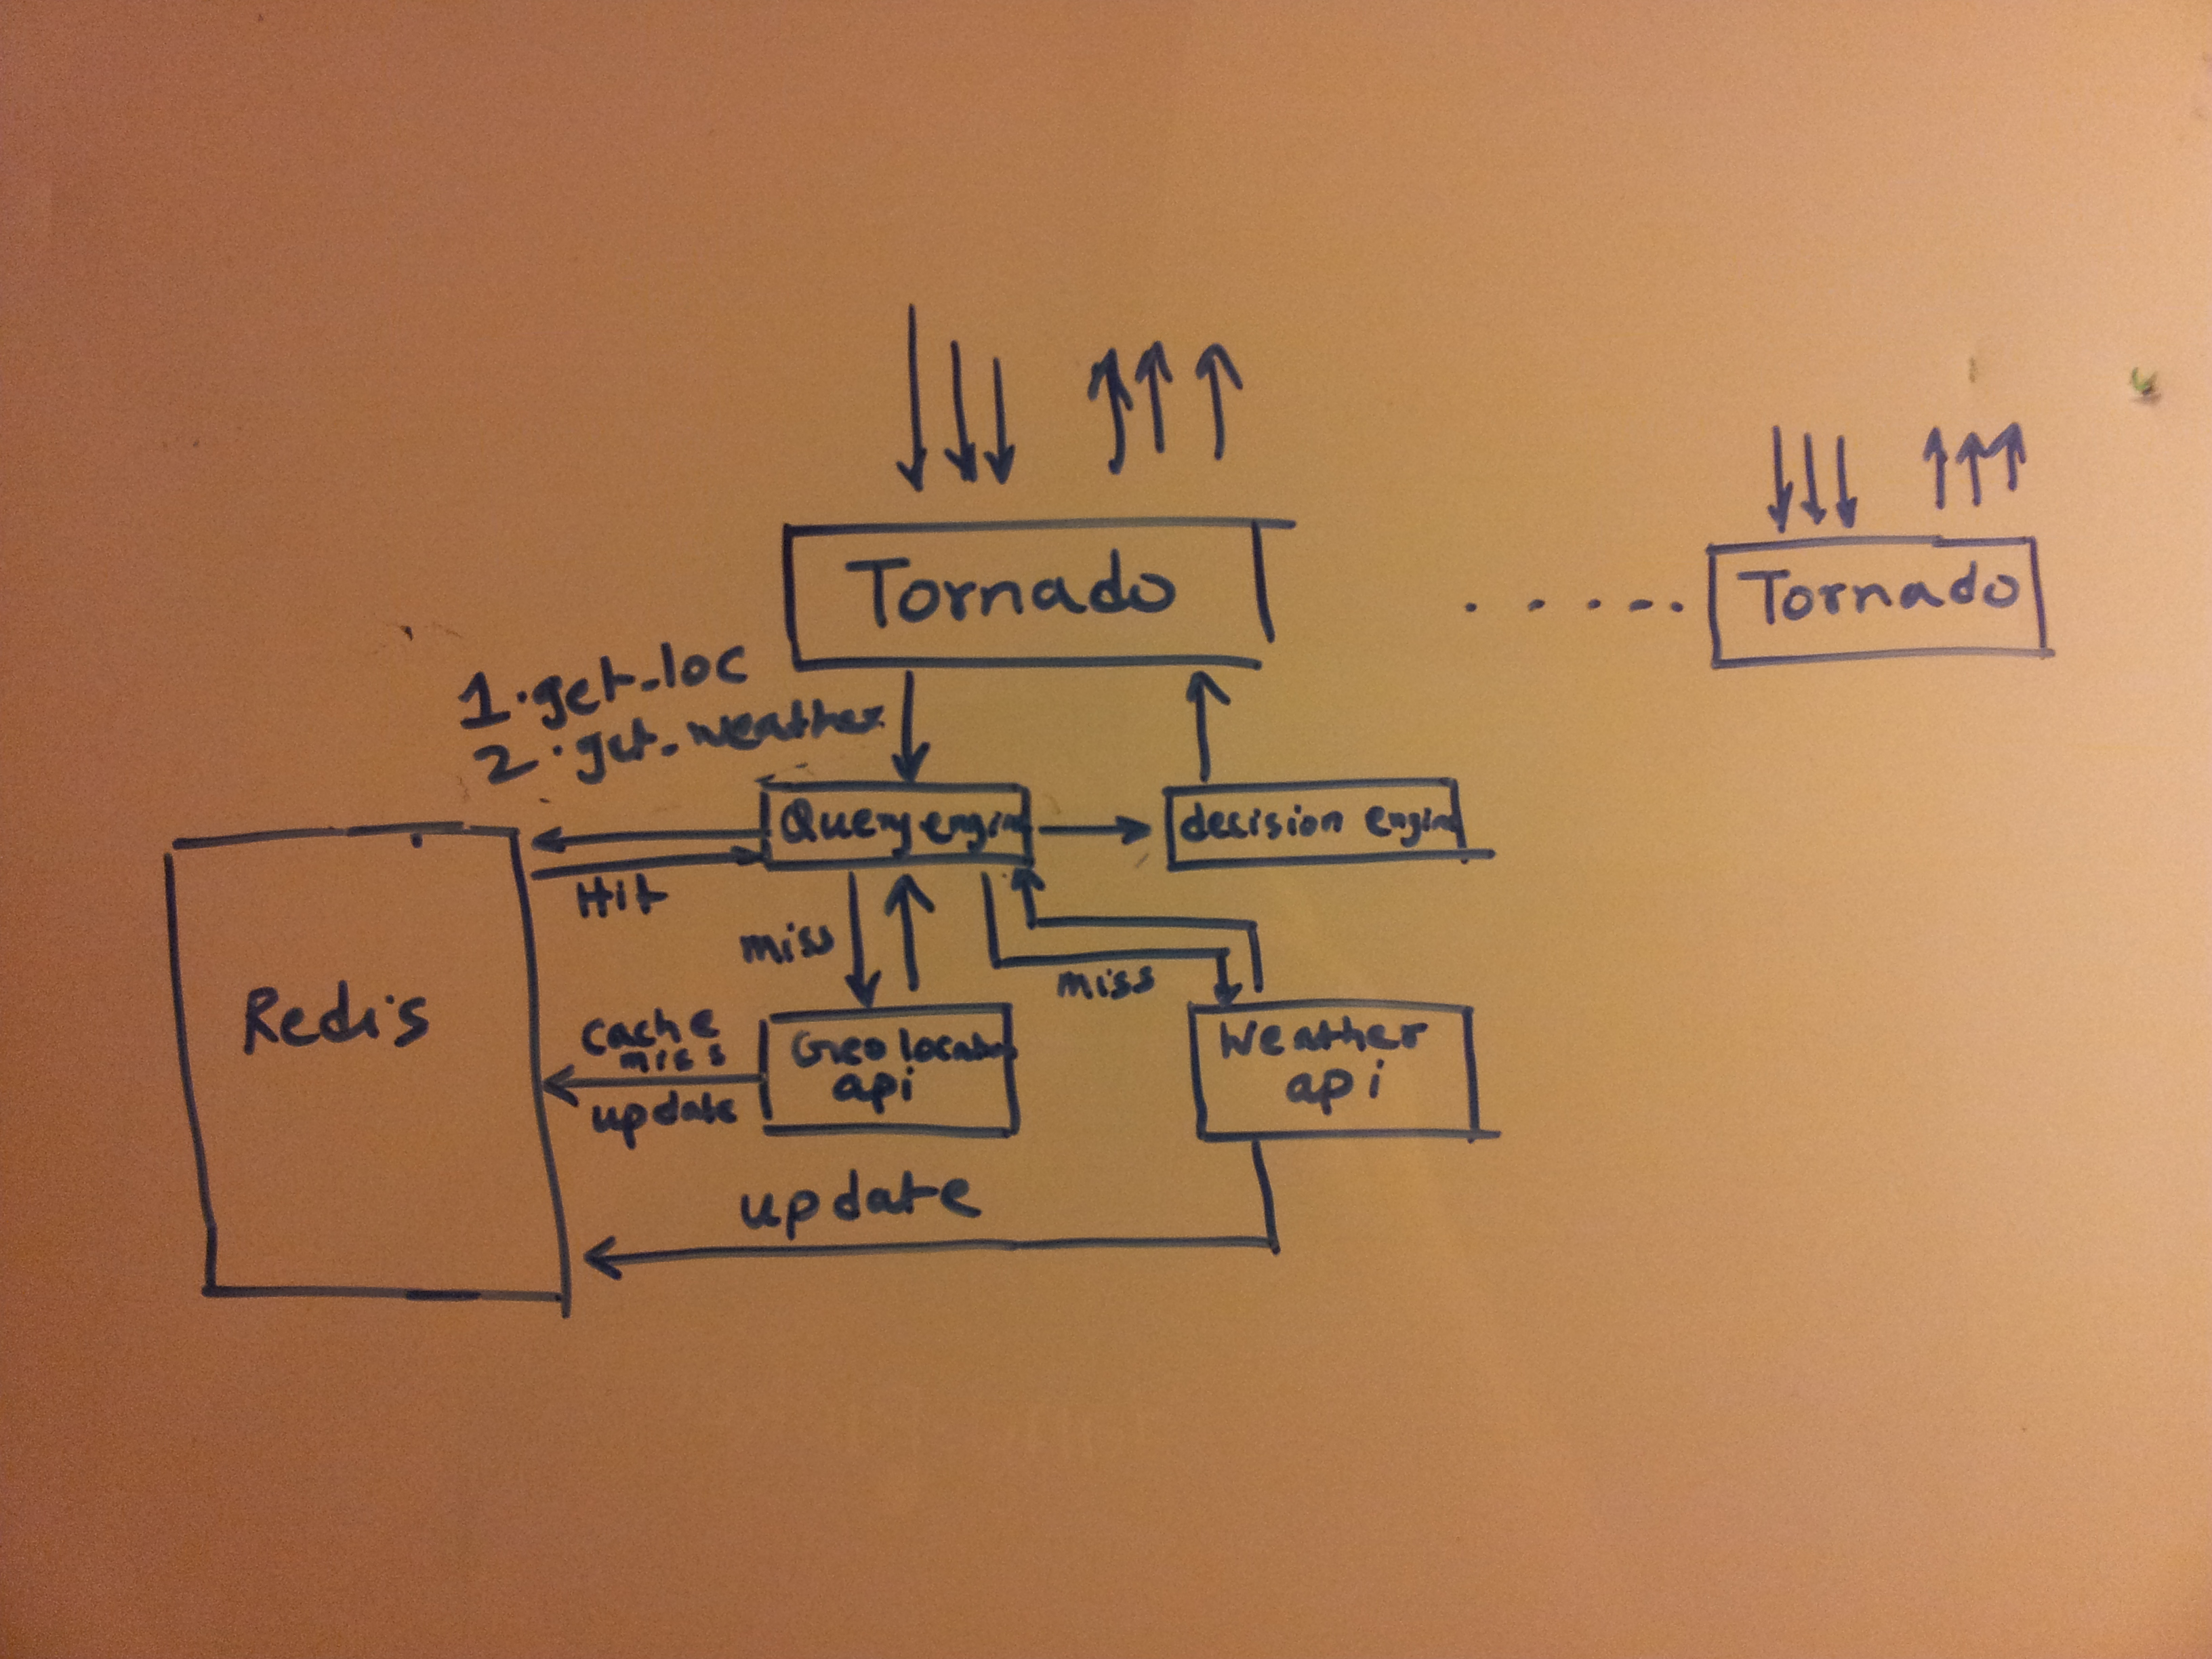 Tornado
Tornado
1. get_loc
2. get_weather
Query engine
decision engine
Hit
miss
miss
Redis
Cache
miss
update
Geo
api
Weather
api
update